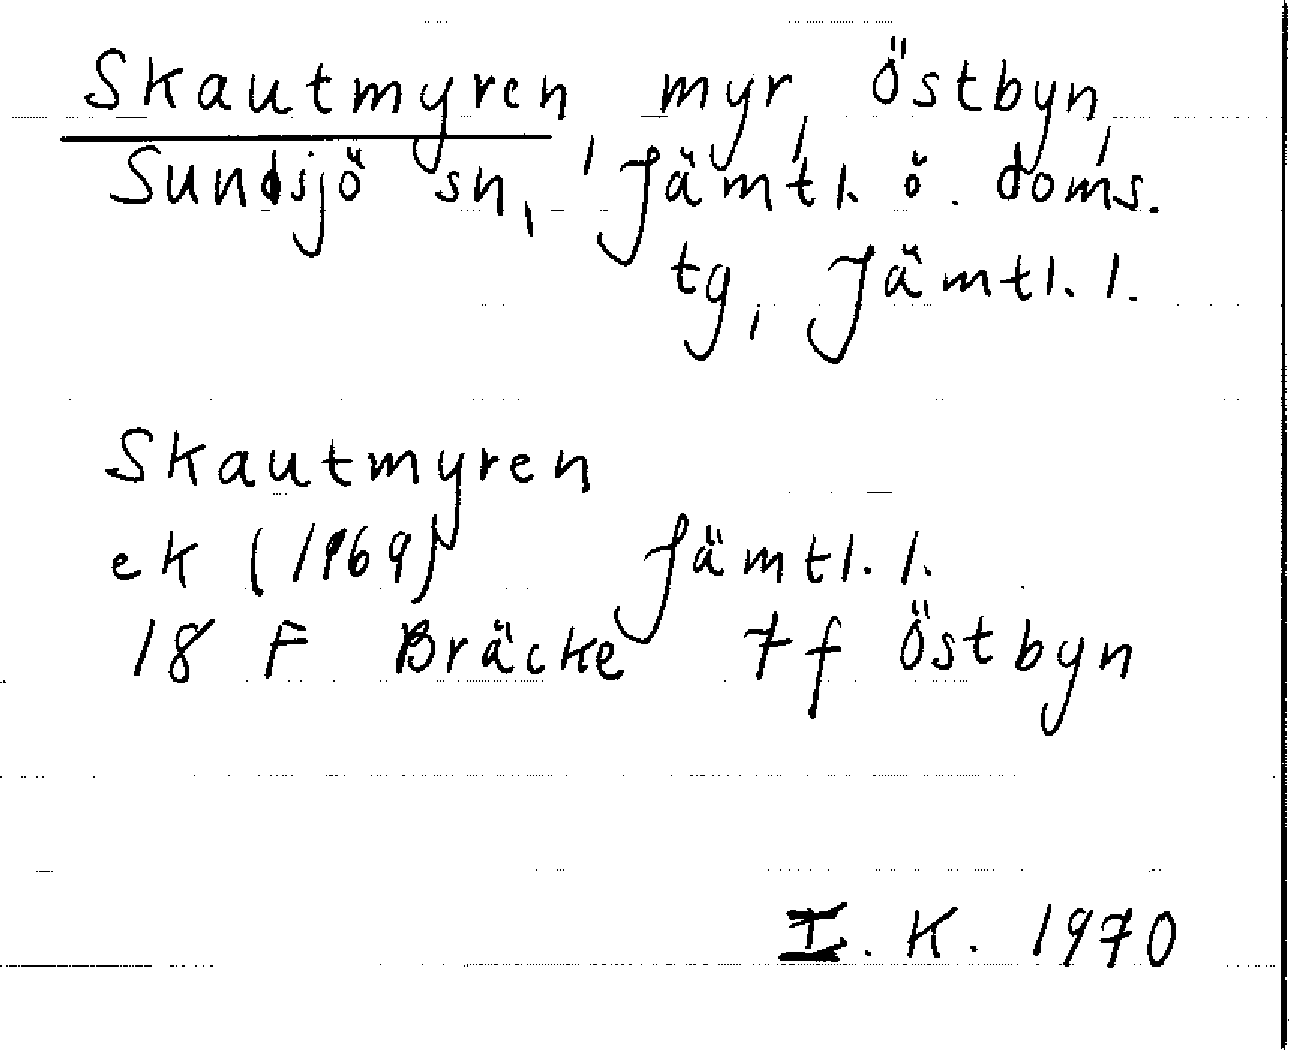 Skautmyren, myr, Östbyn,
Sundsjö sn, Jämtl. ö. doms.
tg, Jämtl. l.
Skautmyren
ek (1969) Jämtl. l.
18 F Bräcke 7f Östbyn
I. K. 1970